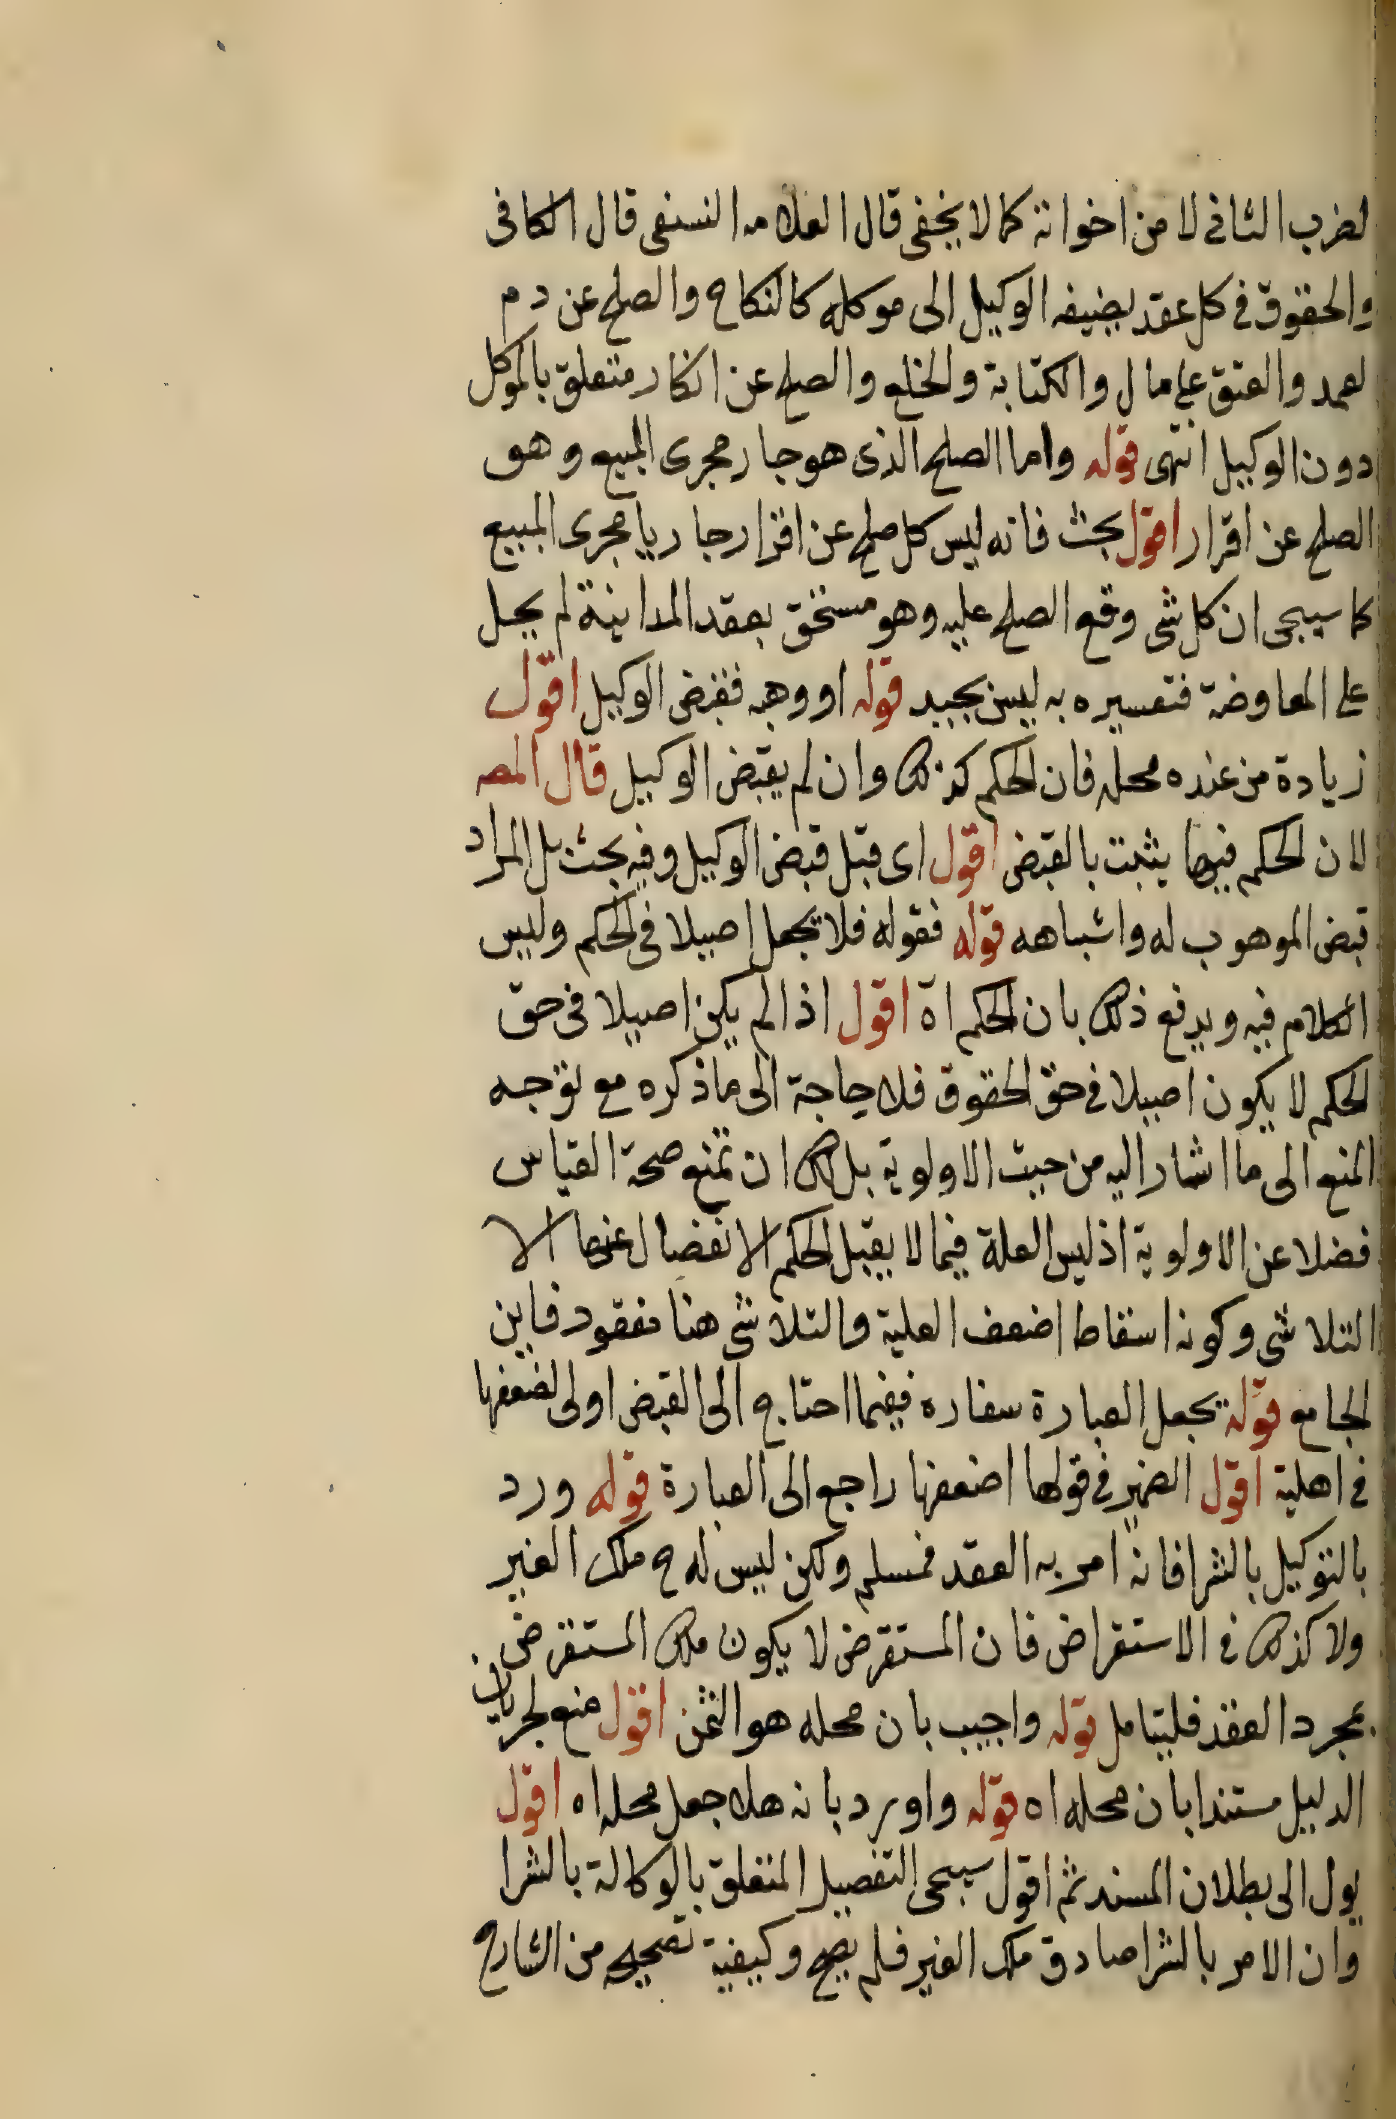 لضرب الثانى لا من اخواته كما لا يخفى قال العلامه النسفى قال الكافى
والحقوق فى كل عقد يضيفه الوكيل الى موكله كالنكاح والصلح عن دم
لعمد والعتق على مال والكتابة والخلع والصلح عن انكار متعلق بالموكل
دون الوكيل انتهى قوله واما الصلح الذى هو جار مجرى المبيع وهو
الصلح عن اقرار اقول بحث فانه ليس كل صلح عن اقرار جاريا مجرى المبيع
كما سيجى ان كل شى وقع الصلح عليه وهو مستحق بعقد المداينة لم يحمل
على المعاوضة فتفسيره به ليس بجيد قوله او وهبه فقبض الوكيل اقول
زيادة من عنده محله فان الحكم كذلك وان لم يقبض الوكيل قال المصه
لان الحكم فيها يثبت بالقبض اقول اى قبل قبض الوكيل وفيه بحث بل المراد
قبض الموهوب له واشباهه قوله فقوله فلا يجعل اصيلا فى الحكم وليس
الكلام فيه ويدفع ذلك بان الحكم اه اقول اذا لم يكن اصيلا فى حق
الحكم لا يكون اصيلا فى حق الحقوق فلا حاجة الى ما ذكره مع توجه
المنع الى ما اشار اليه من حيث الاولوية بل لك ان تمنع صحة القياس
فضلا عن الاولوية اذ ليس العلة فيما لا يقبل الحكم الانفصال عنها الا
التلاشى وكونه اسقاطا اضعف العلية والتلاشى هنا مفقود فاين
الجامع قوله يجعل العبارة سفاره ففيما احتاج الى القبض اولى لضعفها
فى اهلية اقول الضمير فى قولها اضعفها راجع الى العبارة قوله ورد
بالتوكيل بالشرا فانه امر به العقد فمسلم ولكن ليس له ح ملك الغير
ولا كذلك فى الاستقراض فان المستقرض لا يكون ملك المستقرض
بمجرد العقد فليتامل قوله واجيب بان محله هو الثمن اقول منع لجريان
الدليل مستندا بان محله اه قوله واورد بانه هلا جعل محله اه اقول
يول الى بطلان المسند ثم اقول سيجى التفصيل المتعلق بالوكالة بالشرا
وان الامر بالشرا صادق ملك الغير فلم يصح وكيفية تصحيحه من الشارح